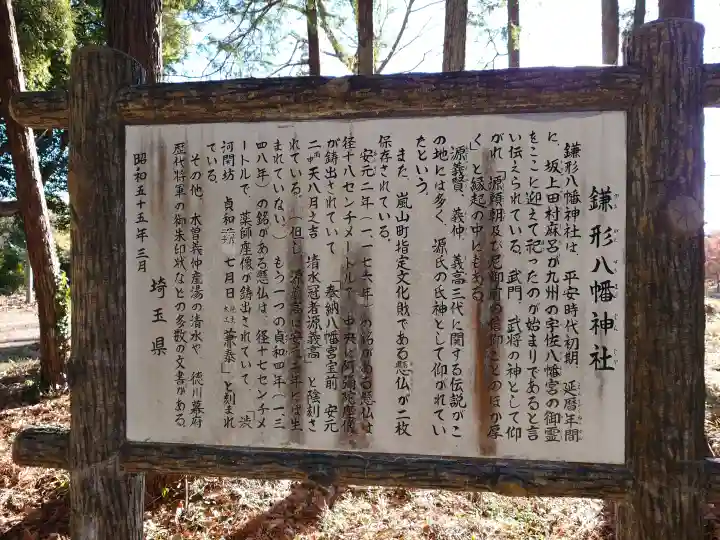 鎌形八幡神社
鎌形八幡神社は、平安時代初期、延暦年間
に、坂上田村麻呂が九州の宇佐八幡宮の御霊
をここに迎えて祀ったのが始まりであると言
い伝えられている。武門、武将の神として仰
がれ「源頼朝及び尼御前の信仰ことのほか厚
く」と縁起の中にもある。
源義賢、義仲、義高三代に関する伝説がこ
の地には多く、源氏の氏神として仰がれてい
たという。
また、嵐山町指定文化財である懸仏が二枚
保存されている。
安元二年(一一七六年)の銘がある懸仏は
径十八センチメートルで、中央に阿弥陀座像
が鋳出されていて「奉納八幡宮宝前 安元
二丙申天八月之吉 清水冠者源義高」と陰刻さ
れている。(但し、源義高は安元二年には生
まれていない。)もう一つの貞和四年(一三
四八年)の銘がある懸仏は、径十七センチメ
ートルで、薬師座像が鋳出されていて、渋
河閇坊 貞和 七月日 兼泰」と刻まれ
ている。
その他、木曽義仲産湯の清水や、徳川幕府
歴代将軍の御朱印状などの多数の文書がある。
昭和五十五年三月
埼玉県